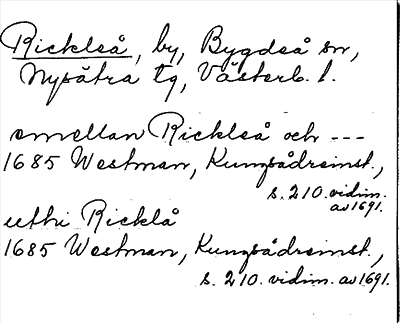 Rickleå, by, Bygdeå sn,
Nysätra tg, Västerb. l.
emellan Rickleå och ---
1685 Westman, Kungsådreinst.,
s. 210. vidim.
av 1691.
uthi Ricklå
1685 Westman, Kungsådreinst.,
s. 210. vidim. av 1691.